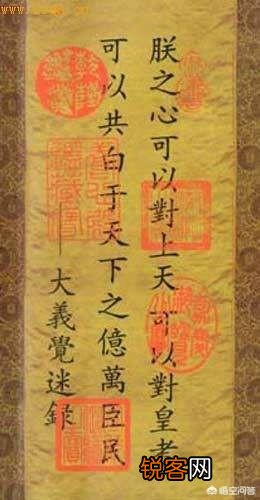 朕之心可以對上天可以對皇考
可以共白于天下之億萬臣民
——大義覺迷錄
锐客网
悟空问答